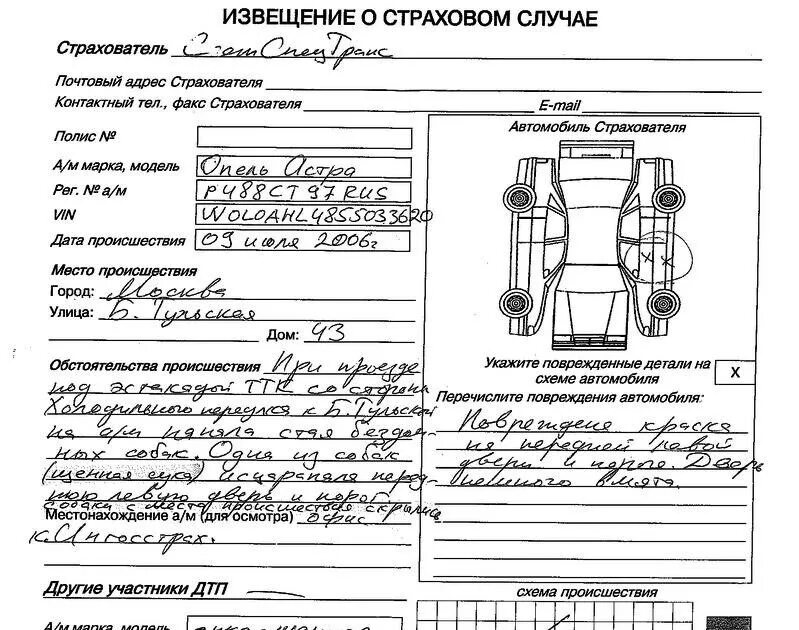 ИЗВЕЩЕНИЕ О СТРАХОВОМ СЛУЧАЕ
Страхователь СпецТранс
Почтовый адрес Страхователя
Контактный тел., факс Страхователя E-mail
Полис №
А/м марка, модель Опель Астра
Рег. № а/м Р488СТ 97 RUS
VIN W0L0AHL4855033620
Дата происшествия 09 июля 2006г
Место происшествия
Город: Москва
Улица: Б. Тульская
Дом: 43
Обстоятельства происшествия При проезде
под эстакадой ТТК со стороны
Холодильного переулка к Б.Тульской
на а/м напала стая бездом-
ных собак. Одна из собак
(щенная сука) исцарапала перед-
нюю левую дверь и порог.
собаки с места происшествия скрылись
Местонахождение а/м (для осмотра) офис
к. Ингосстрах.
Другие участники ДТП
А/м марка, модель
Автомобиль Страхователя
x x
Укажите поврежденные детали на
схеме автомобиля
X
Перечислите повреждения автомобиля:
Повреждена краска
на передней левой
двери и пороге. Дверь
немного вмята.
схема происшествия